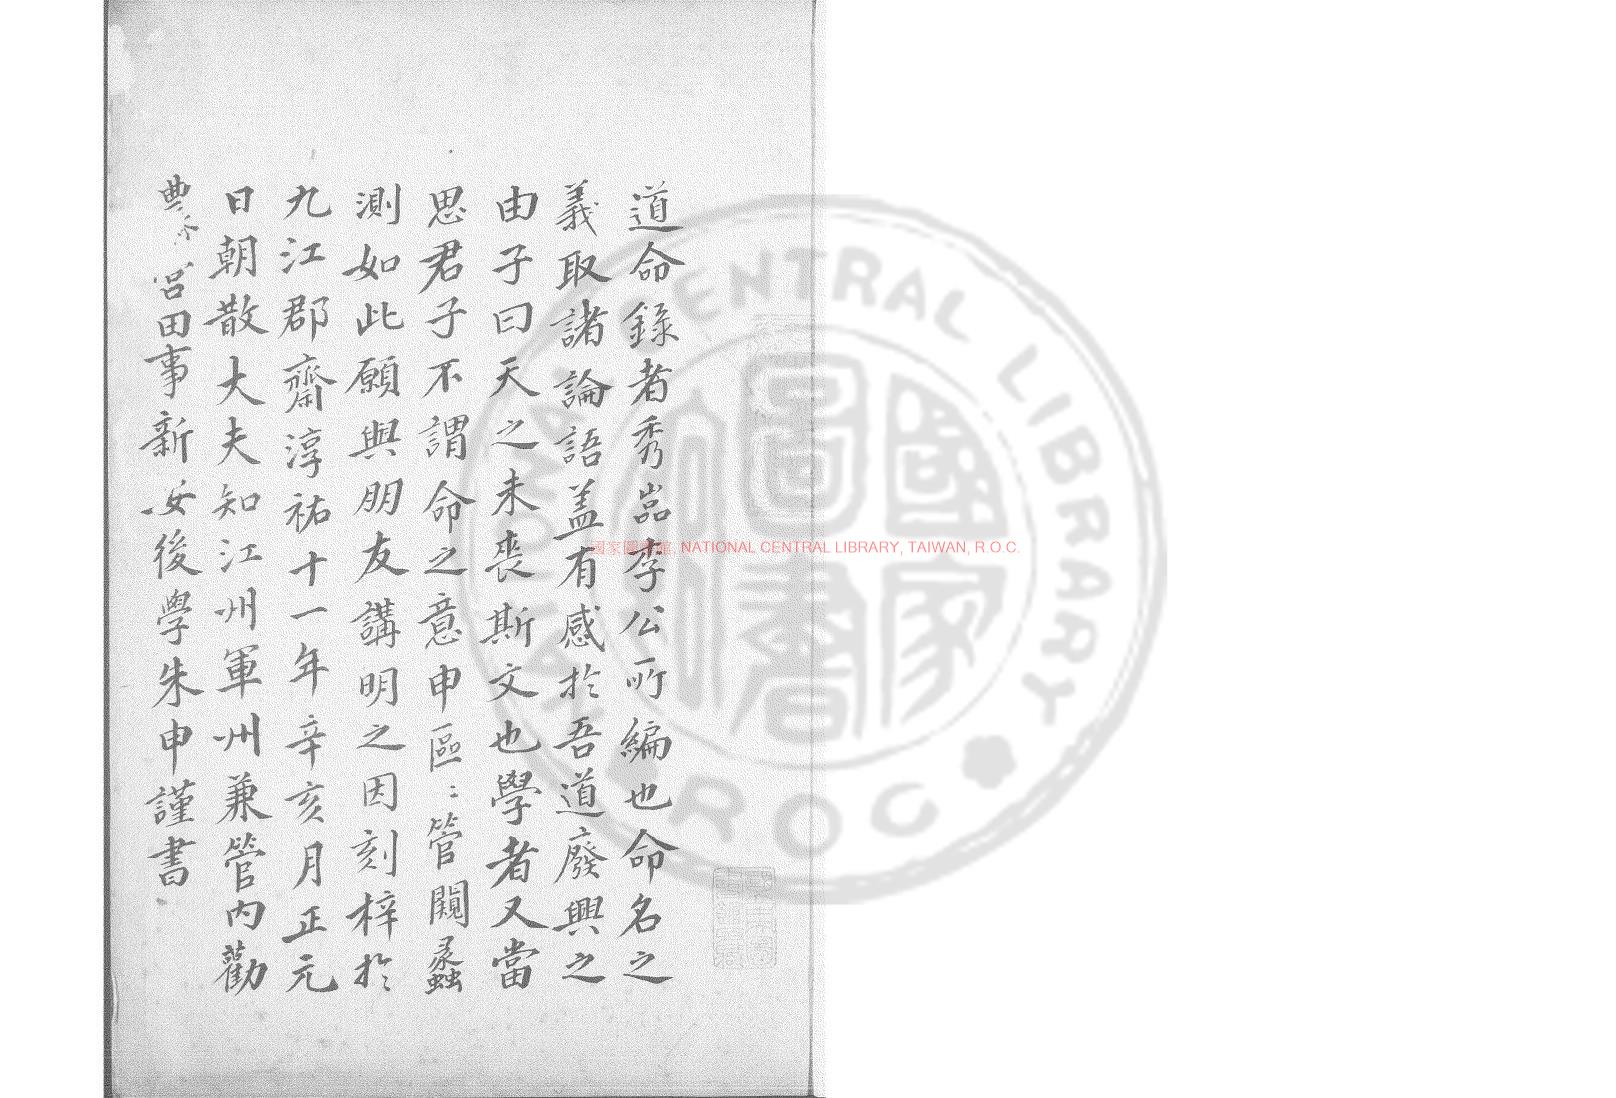 道命錄者秀嵓李公所編也命名之
義取諸論語盖有感於吾道廢興之
由子曰天之未喪斯文也學者又當
思君子不謂命之意申區〻管闚蠡
測如此願與朋友講明之因刻梓於
九江郡齋淳祐十一年辛亥月正元
日朝散大夫知江州軍州兼管內勸
農營田事新安後學朱申謹書
國家圖書館, NATIONAL CENTRAL LIBRARY, TAIWAN, R.O.C.
國家圖書
NATIONAL CENTRAL LIBRARY
ROC